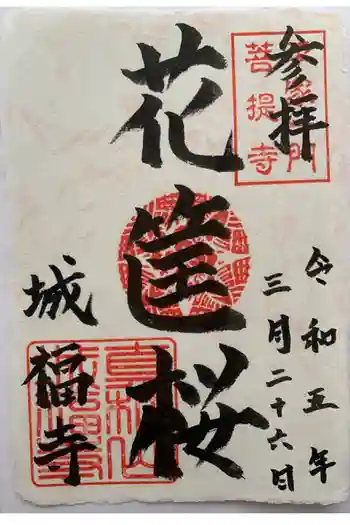 参拝
菩提寺
花筐桜
令和五年
三月二十六日
城福寺